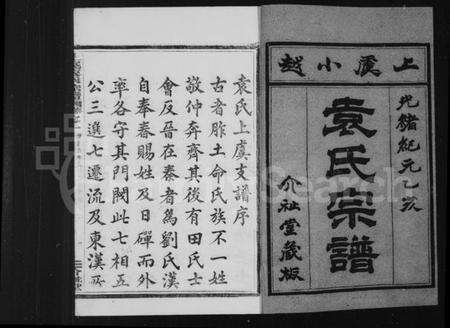 上虞小越
光緒紀元乙亥
袁氏宗譜
介祉堂藏板
袁氏上虞支譜序
古者胙土命氏族不一姓
敬仲奔齊其後有田氏士
會反晉在秦者為劉氏漢
自奉春賜姓及日磾而外
率各守其門閥此七相五
公三進七遷流及東漢